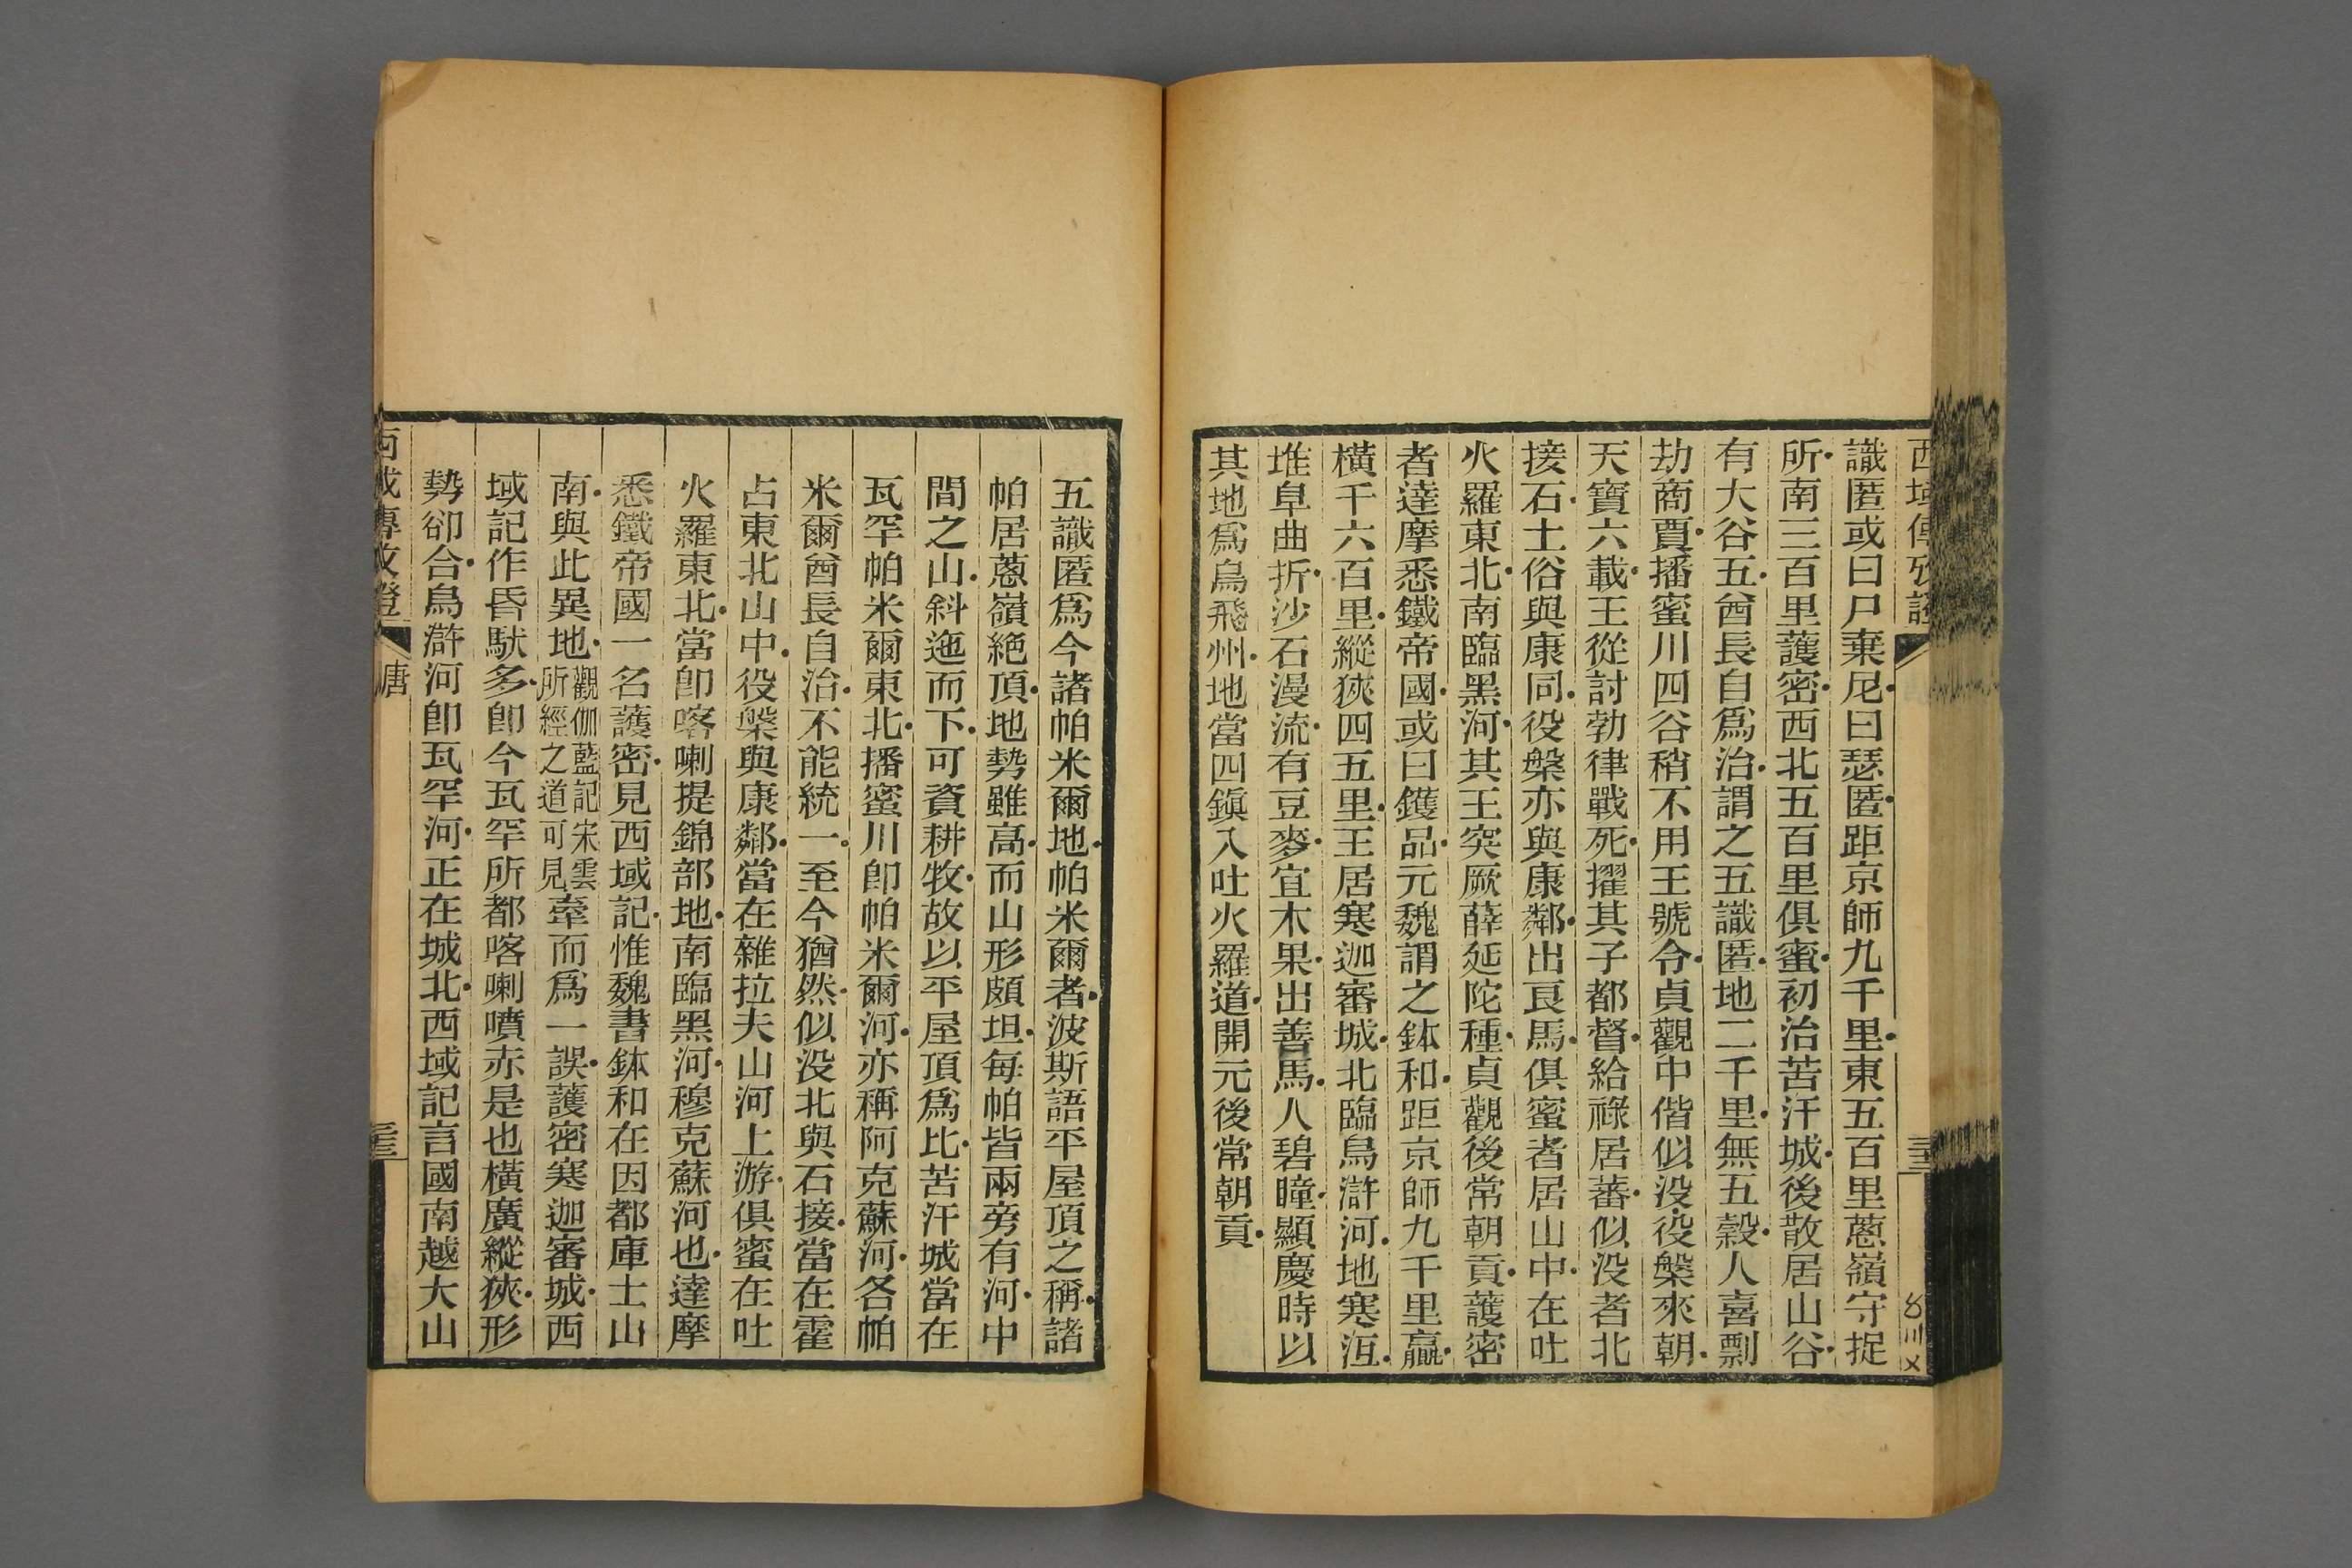 西域傳攷證
識匿或曰尸棄尼曰瑟匿距京師九千里東五百里蔥嶺守捉
所南三百里護密西北五百里俱蜜初治苦汗城後散居山谷
有大谷五酋長自爲治謂之五識匿地二千里無五穀人喜剽
劫商賈播蜜川四谷稍不用王號令貞觀中偕似没役槃來朝
天寶六載王從討勃律戰死擢其子都督給祿居蕃似没者北
接石土俗與康同役槃亦與康鄰出良馬俱蜜者居山中在吐
火羅東北南臨黑河其王突厥薛延陀種貞觀後常朝貢護密
者達摩悉鐵帝國或曰鑊品元魏謂之鉢和距京師九千里贏
橫千六百里縱狹四五里王居寒迦審城北臨烏滸河地寒沍
堆阜曲折沙石漫流有豆麥宜木果出善馬人碧瞳顯慶時以
其地爲鳥飛州地當四鎭入吐火羅道開元後常朝貢
五識匿爲今諸帕米爾地帕米爾者波斯語平屋頂之稱諸
帕居蔥嶺絶頂地勢雖高而山形頗坦每帕皆兩旁有河中
間之山斜迤而下可資耕牧故以平屋頂爲比苦汗城當在
瓦罕帕米爾東北播蜜川卽帕米爾河亦稱阿克蘇河各帕
米爾酋長自治不能統一至今猶然似没北與石接當在霍
占東北山中役槃與康鄰當在雜拉夫山河上游俱蜜在吐
火羅東北當卽喀喇提錦部地南臨黑河穆克蘇河也達摩
悉鐵帝國一名護密見西域記惟魏書鉢和在因都庫士山
南與此異地觀伽藍記宋雲所經之道可見牽而爲一誤護密寒迦審城西
域記作昏馱多卽今瓦罕所都喀喇噴赤是也橫廣縱狹形
勢卻合烏滸河卽瓦罕河正在城北西域記言國南越大山
西域傳攷證
唐